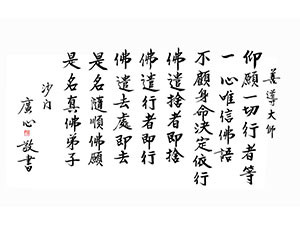 善導大师
仰願一切行者等
一心唯信佛語
不顧身命決定依行
佛遣捨者即捨
佛遣行者即行
佛遣去處即去
是名隨順佛願
是名真佛弟子
沙门
廣心敬書